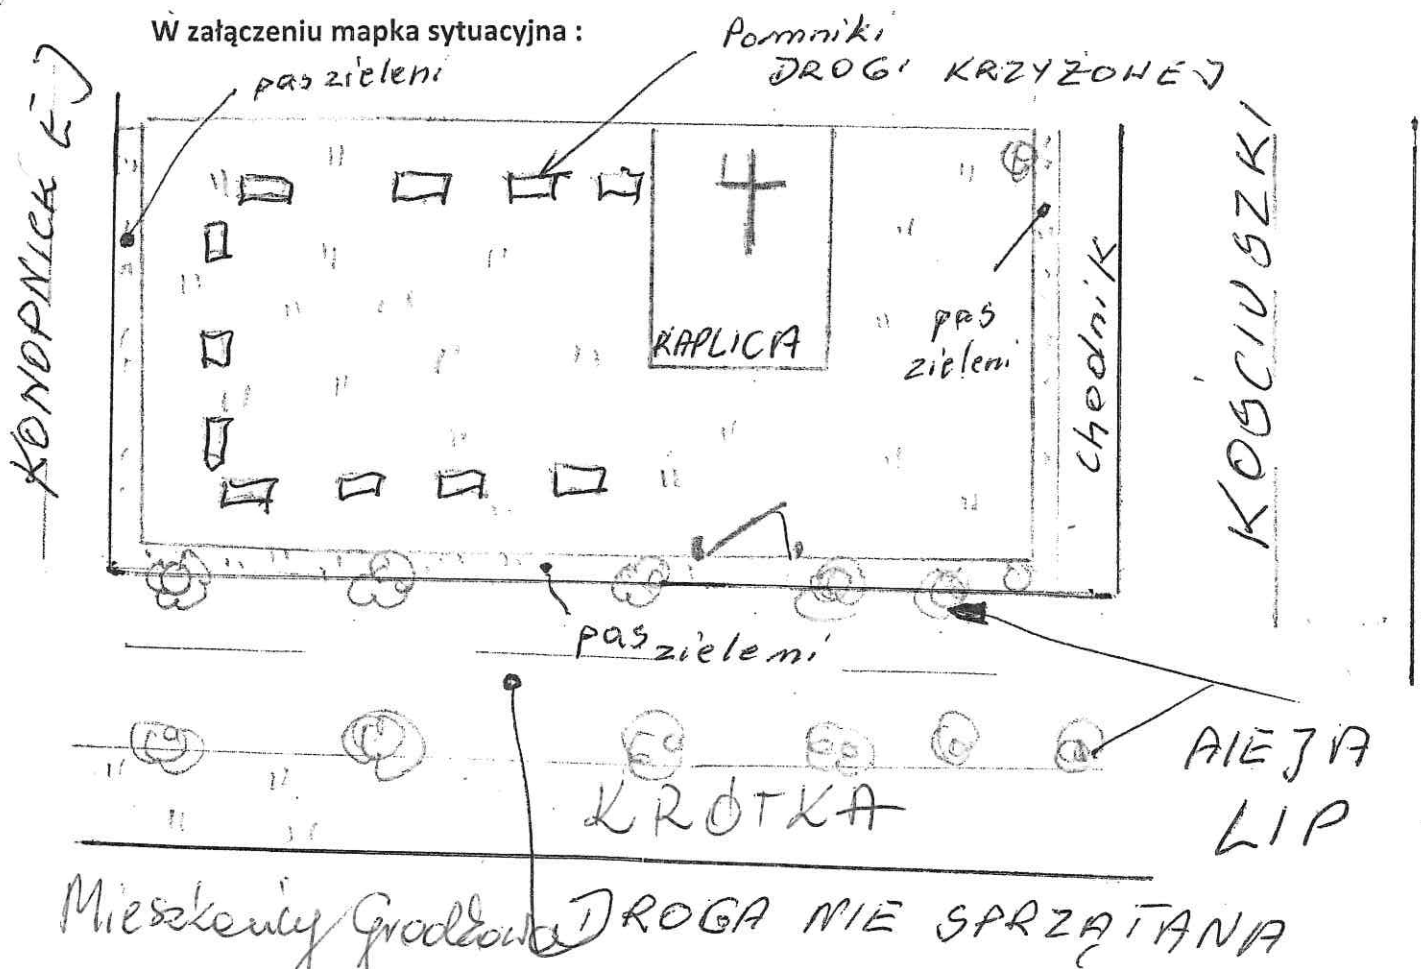 W załączeniu mapka sytuacyjna :
Pomniki
DROGI KRZYŻOWEJ
pas zieleni
KONOPNICKIEJ
KAPLICA
pas
zieleni
chodnik
KOŚCIUSZKI
pas zieleni
ALEJA
LIP
KRÓTKA
Mieszkańcy Grodkowa
DROGA NIE SPRZĄTANA